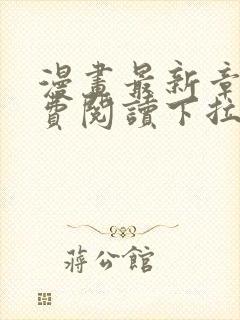 漫畫最新章
費閱讀下拉
蔣公館